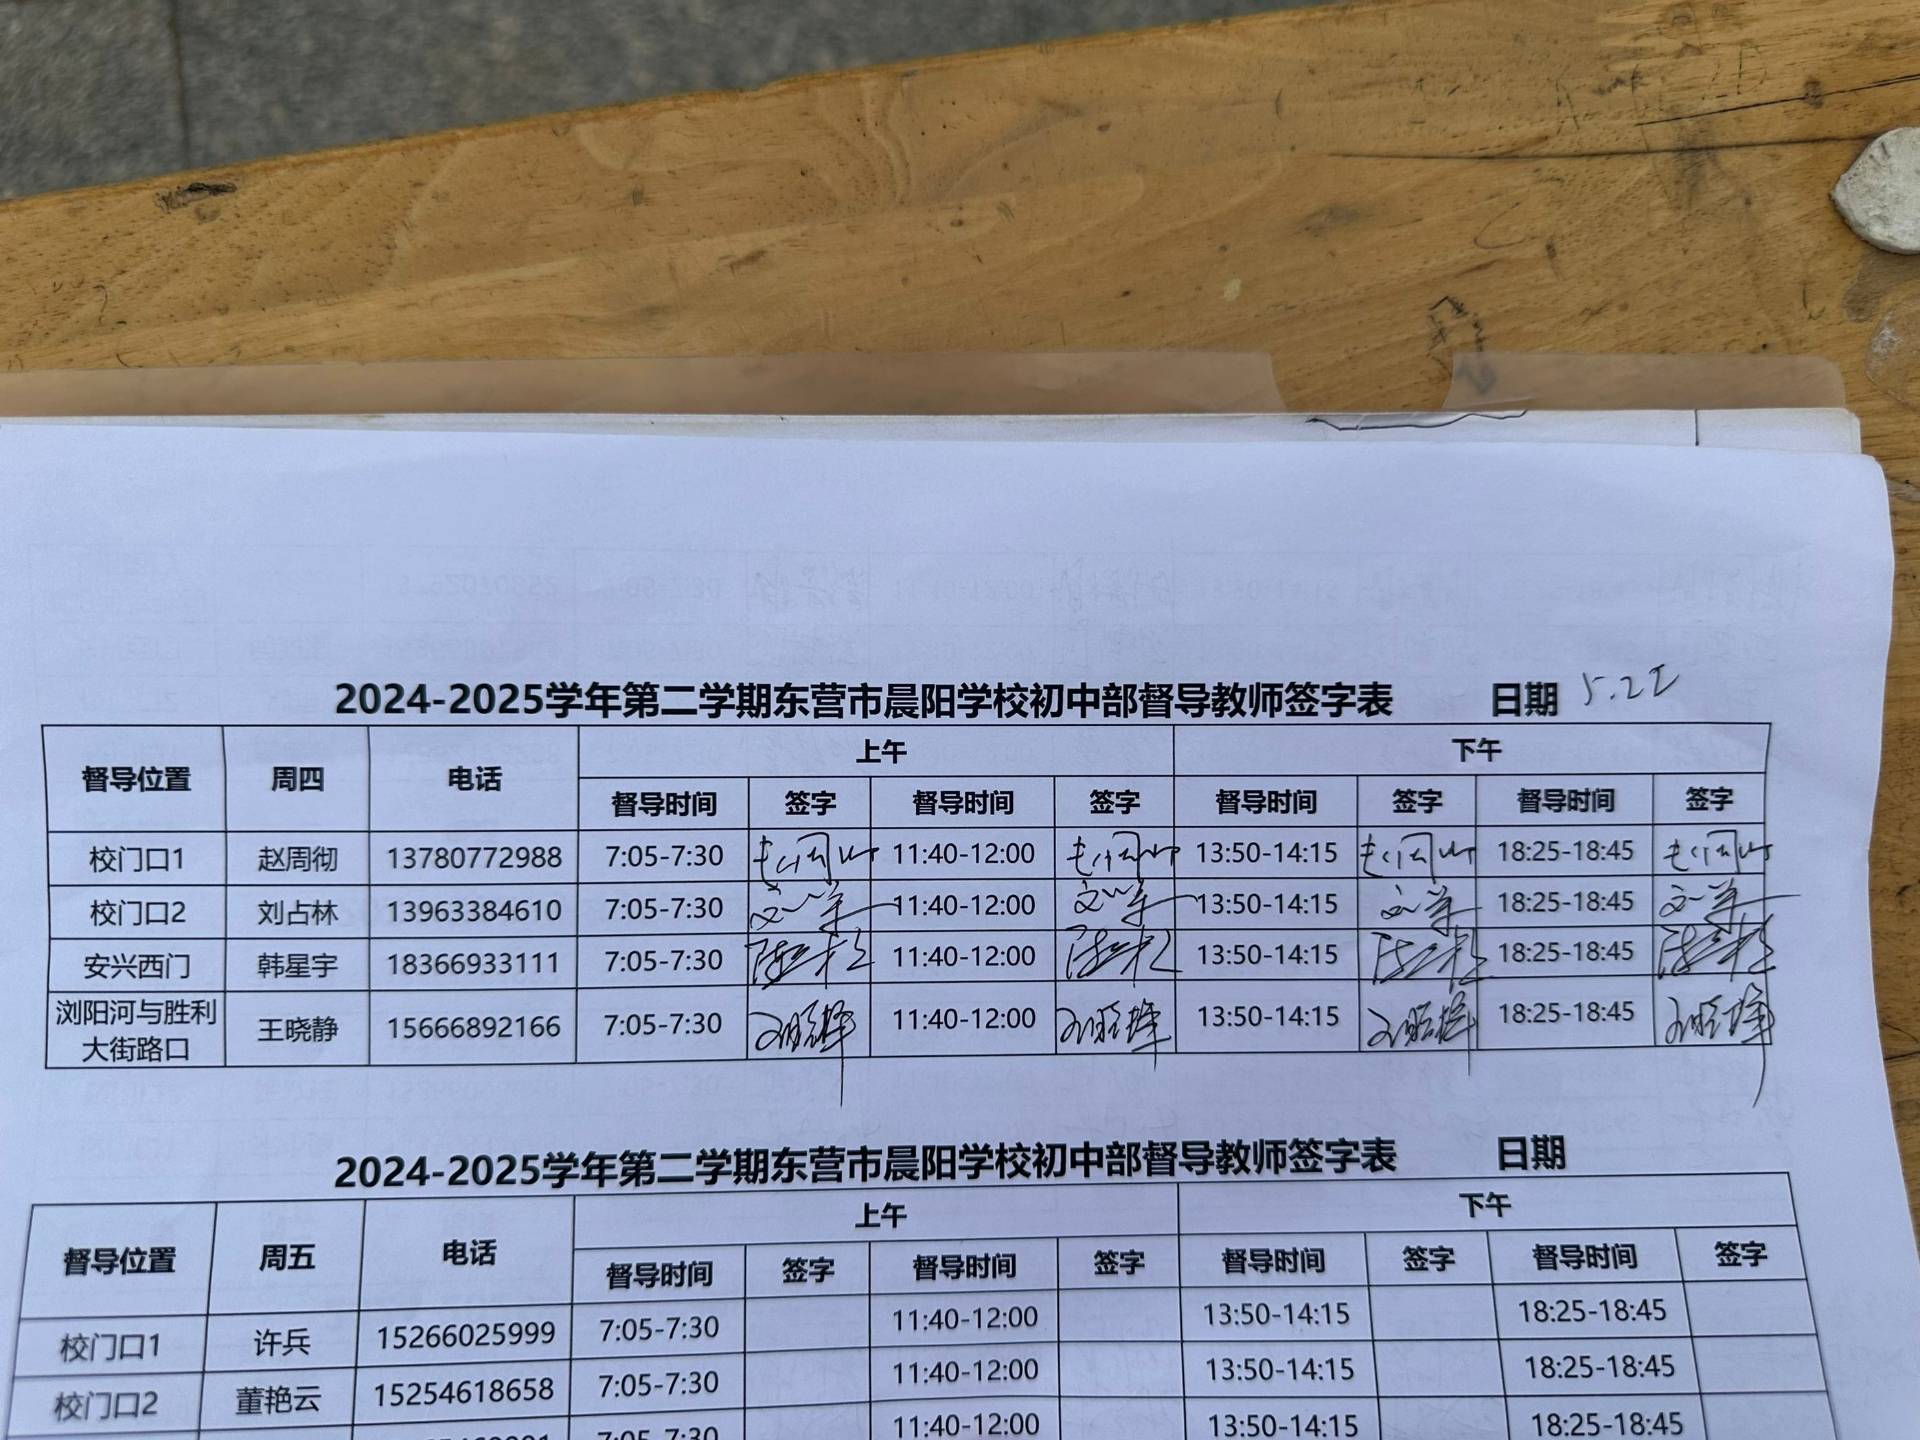 2024-2025学年第二学期东营市晨阳学校初中部督导教师签字表 日期 5.22
督导位置 周四 电话 上午 下午
督导时间 签字 督导时间 签字 督导时间 签字 督导时间 签字
校门口1 赵周彻 13780772988 7:05-7:30 11:40-12:00 13:50-14:15 18:25-18:45
校门口2 刘占林 13963384610 7:05-7:30 11:40-12:00 13:50-14:15 18:25-18:45
安兴西门 韩星宇 18366933111 7:05-7:30 11:40-12:00 13:50-14:15 18:25-18:45
浏阳河与胜利
大街路口 王晓静 15666892166 7:05-7:30 11:40-12:00 13:50-14:15 18:25-18:45
2024-2025学年第二学期东营市晨阳学校初中部督导教师签字表 日期
督导位置 周五 电话 上午 下午
督导时间 签字 督导时间 签字 督导时间 签字 督导时间 签字
校门口1 许兵 15266025999 7:05-7:30 11:40-12:00 13:50-14:15 18:25-18:45
校门口2 董艳云 15254618658 7:05-7:30 11:40-12:00 13:50-14:15 18:25-18:45
7:05-7:30 11:40-12:00 13:50-14:15 18:25-18:45